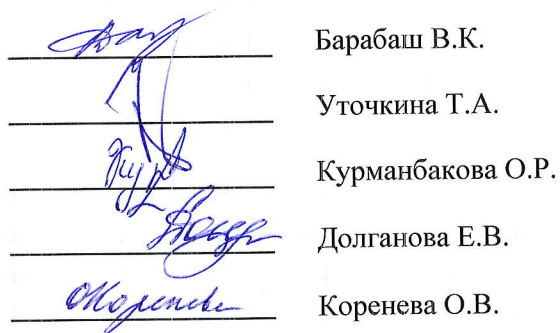 Барабаш В.К.
Уточкина Т.А.
Курманбакова О.Р.
Долганова Е.В.
ОКоренева Коренева О.В.